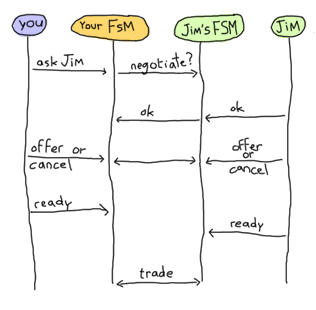 you
Your FSM
Jim's FSM
JiM
ask JiM
negotiate?
ok
ok
offer or
cancel
offer
or
cancel
ready
ready
trade